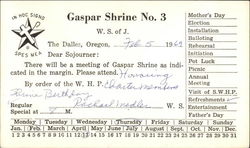 IN HOC SIGNO
SPES MEA
Gaspar Shrine No. 3
W. S. of J.
The Dalles, Oregon, Feb 5 1969
Dear Sojourner:
There will be a meeting of Gaspar Shrine as indi-
cated in the margin. Please attend. Honoring
By order of the W. H. P. Charter members
Birthday
Regular
Special at 8 M. W. S.
Mother's Day
Election
Installation
Balloting
Rehearsal
Initiation
Pot Luck
Picnic
Annual
Meeting
Visit of S.W.H.P.
Refreshments
Entertainment
Father's Day
Monday Tuesday Wednesday Thursday Friday Saturday
Jan. Feb. March April May June July Aug. Sept. Oct. Nov. Dec.